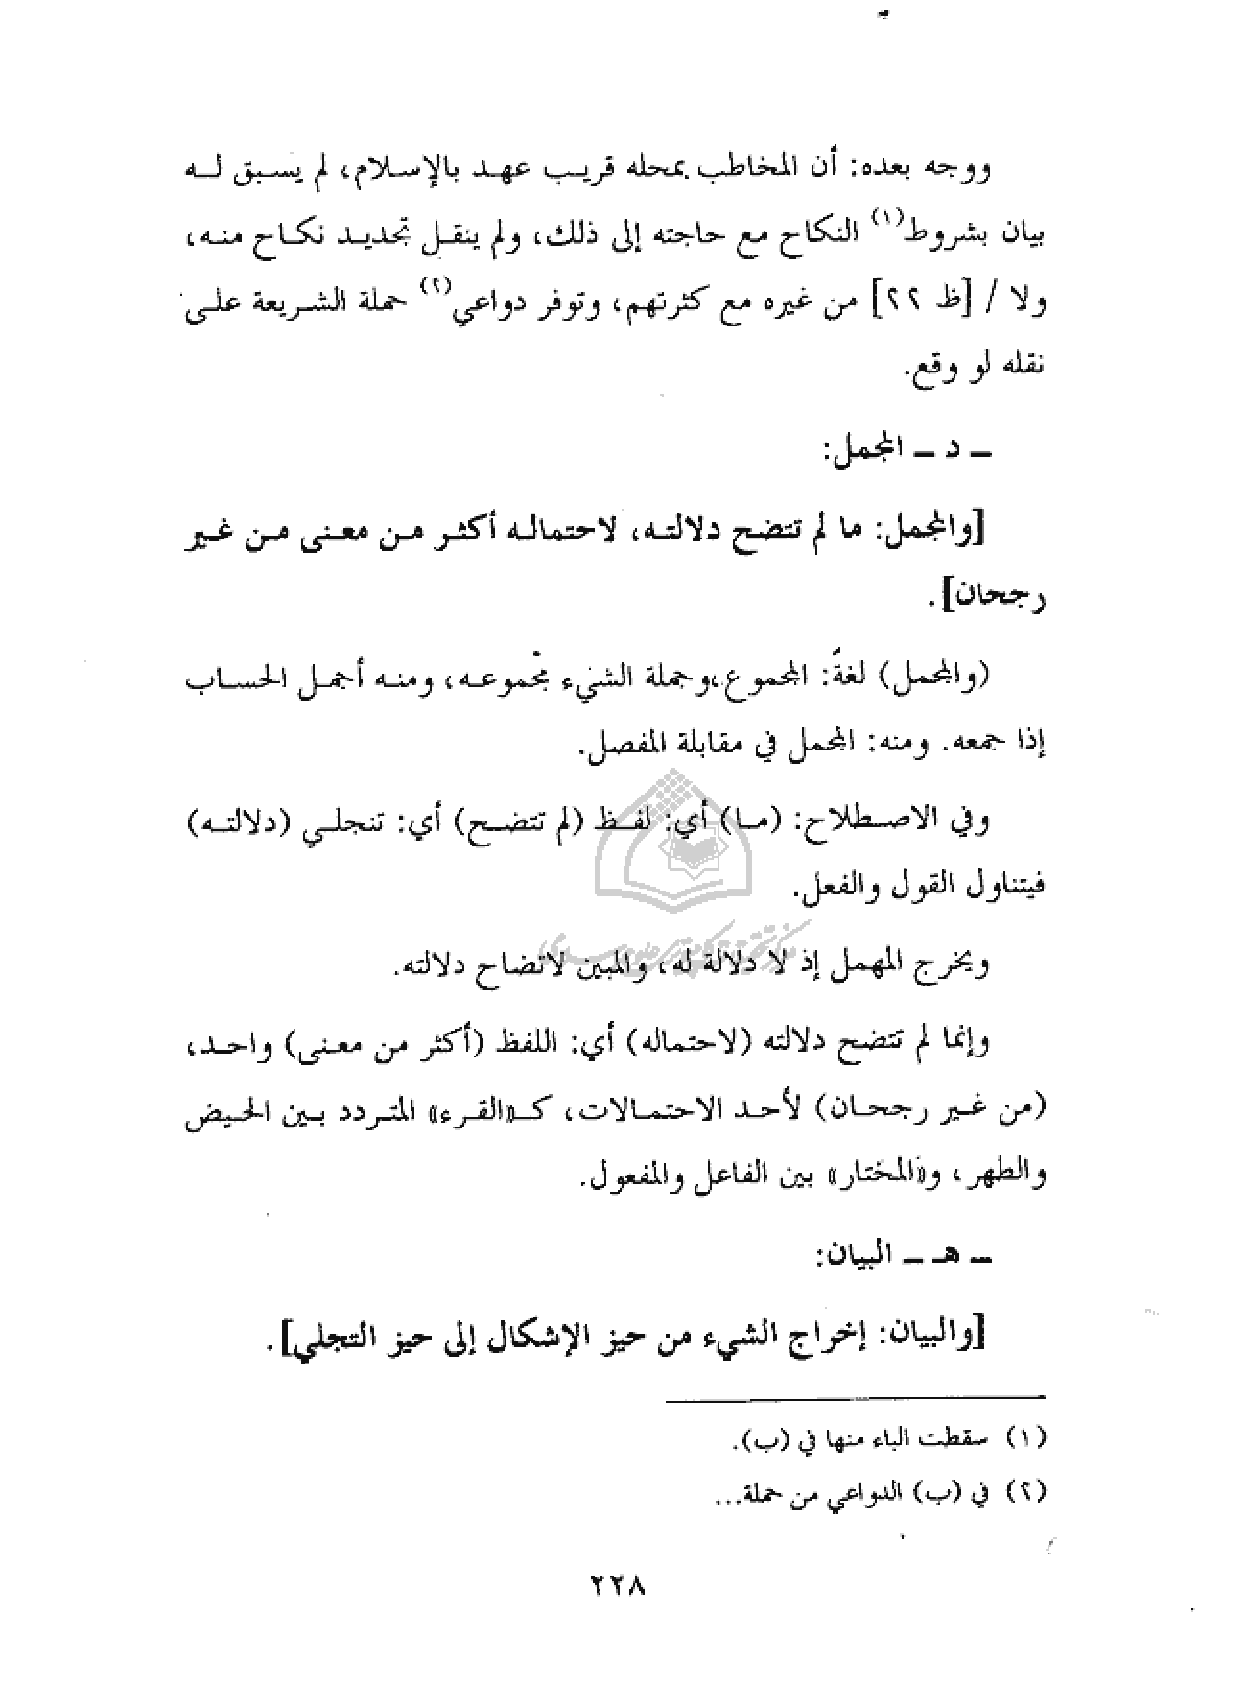 ووجه بعده: أن المخاطب بمحله قريب عهد بالإسلام، لم يسبق له
بيان بشروط(١) النكاح مع حاجته إلى ذلك، ولم ينقل تجديد نكاح منه،
ولا / [ظ ٢٢] من غيره مع كثرتهم، وتوفر دواعي(٢) حملة الشريعة على
نقله لو وقع.
ـ د ـ المجمل:
[والمجمل: ما لم تتضح دلالته، لاحتماله أكثر من معنى من غير
رجحان].
(والمجمل) لغة: المجموع، وجملة الشيء مجموعه، ومنه أجمل الحساب
إذا جمعه. ومنه: المجمل في مقابلة المفصل.
وفي الاصطلاح: (ما) أي: لفظ (لم تتضح) أي: تنجلي (دلالته)
فيتناول القول والفعل.
ويخرج المهمل إذ لا دلالة له، والمبين لاتضاح دلالته.
وإنما لم تتضح دلالته (لاحتماله) أي: اللفظ (أكثر من معنى) واحد،
(من غير رجحان) لأحد الاحتمالات، كـ«القرء» المتردد بين الحيض
والطهر، و«المختار» بين الفاعل والمفعول.
ـ هـ ـ البيان:
[والبيان: إخراج الشيء من حيز الإشكال إلى حيز التجلي].
(١) سقطت الباء منها في (ب).
(٢) في (ب) الدواعي من حملة...
٢٢٨